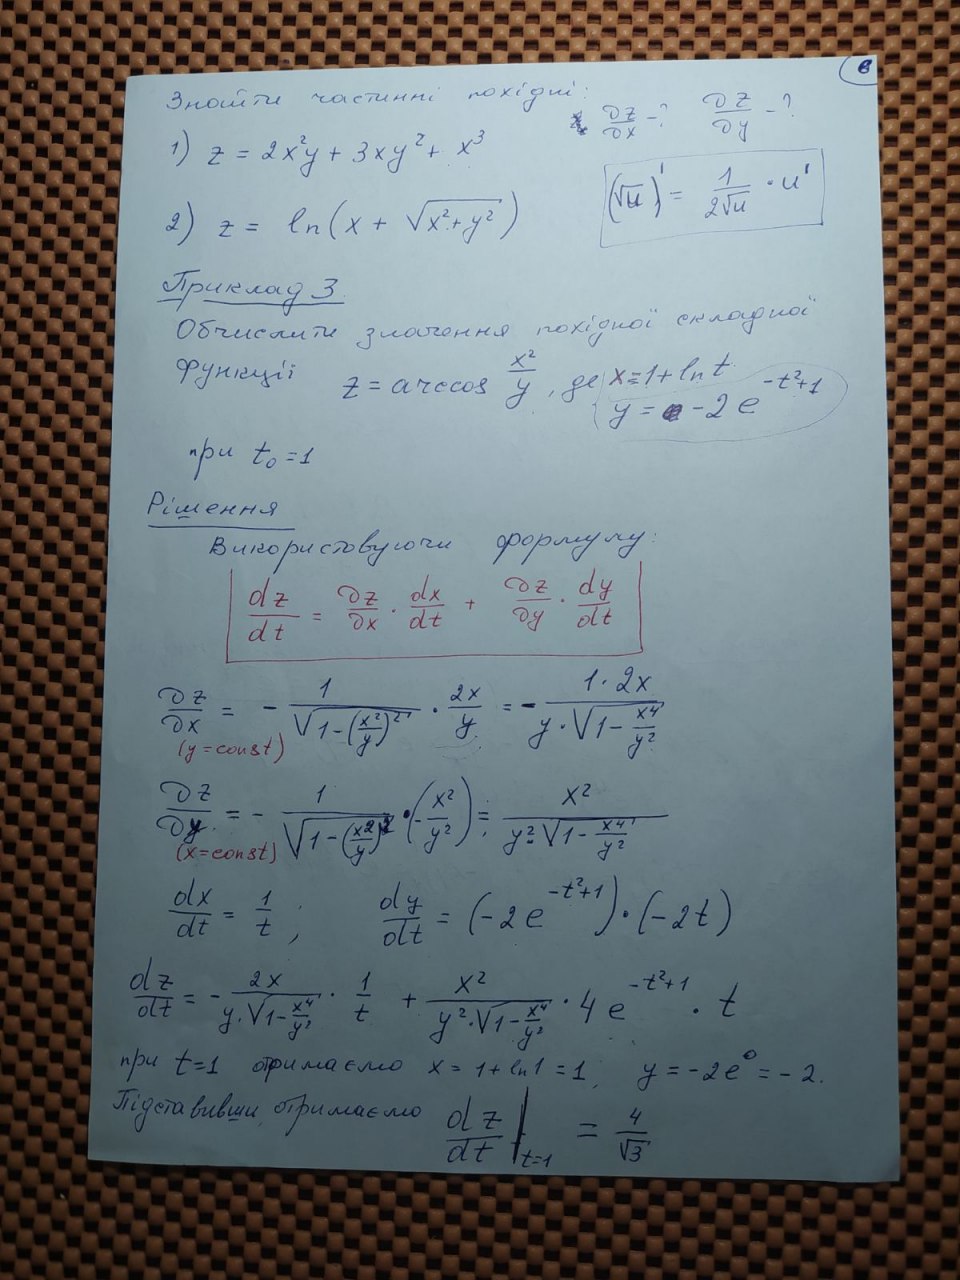 в
Знайти частинні похідні:
∂z/∂x - ? ∂z/∂y - ?
1) z = 2x²y + 3xy² + x³
(√u)' = 1/(2√u) · u'
2) z = ln(x + √(x²+y²))
Приклад 3
Обчислити значення похідної складної
функції z = arccos x²/y, де x = 1 + ln t
y = -2e^(-t²+1)
при t₀ = 1
Рішення
Використовуючи формулу:
dz/dt = ∂z/∂x · dx/dt + ∂z/∂y · dy/dt
∂z/∂x = - 1/√(1-(x²/y)²) · 2x/y = - 1·2x/(y·√(1-x⁴/y²))
(y = const)
∂z/∂y = - 1/√(1-(x²/y)²) · (-x²/y²) = x²/(y²·√(1-x⁴/y²))
(x = const)
dx/dt = 1/t ; dy/dt = (-2e^(-t²+1))·(-2t)
dz/dt = - 2x/(y·√(1-x⁴/y²)) · 1/t + x²/(y²·√(1-x⁴/y²)) · 4e^(-t²+1) · t
при t=1 отримаємо x = 1 + ln1 = 1, y = -2e⁰ = -2.
Підставивши, отримаємо dz/dt |t=1 = 4/√3